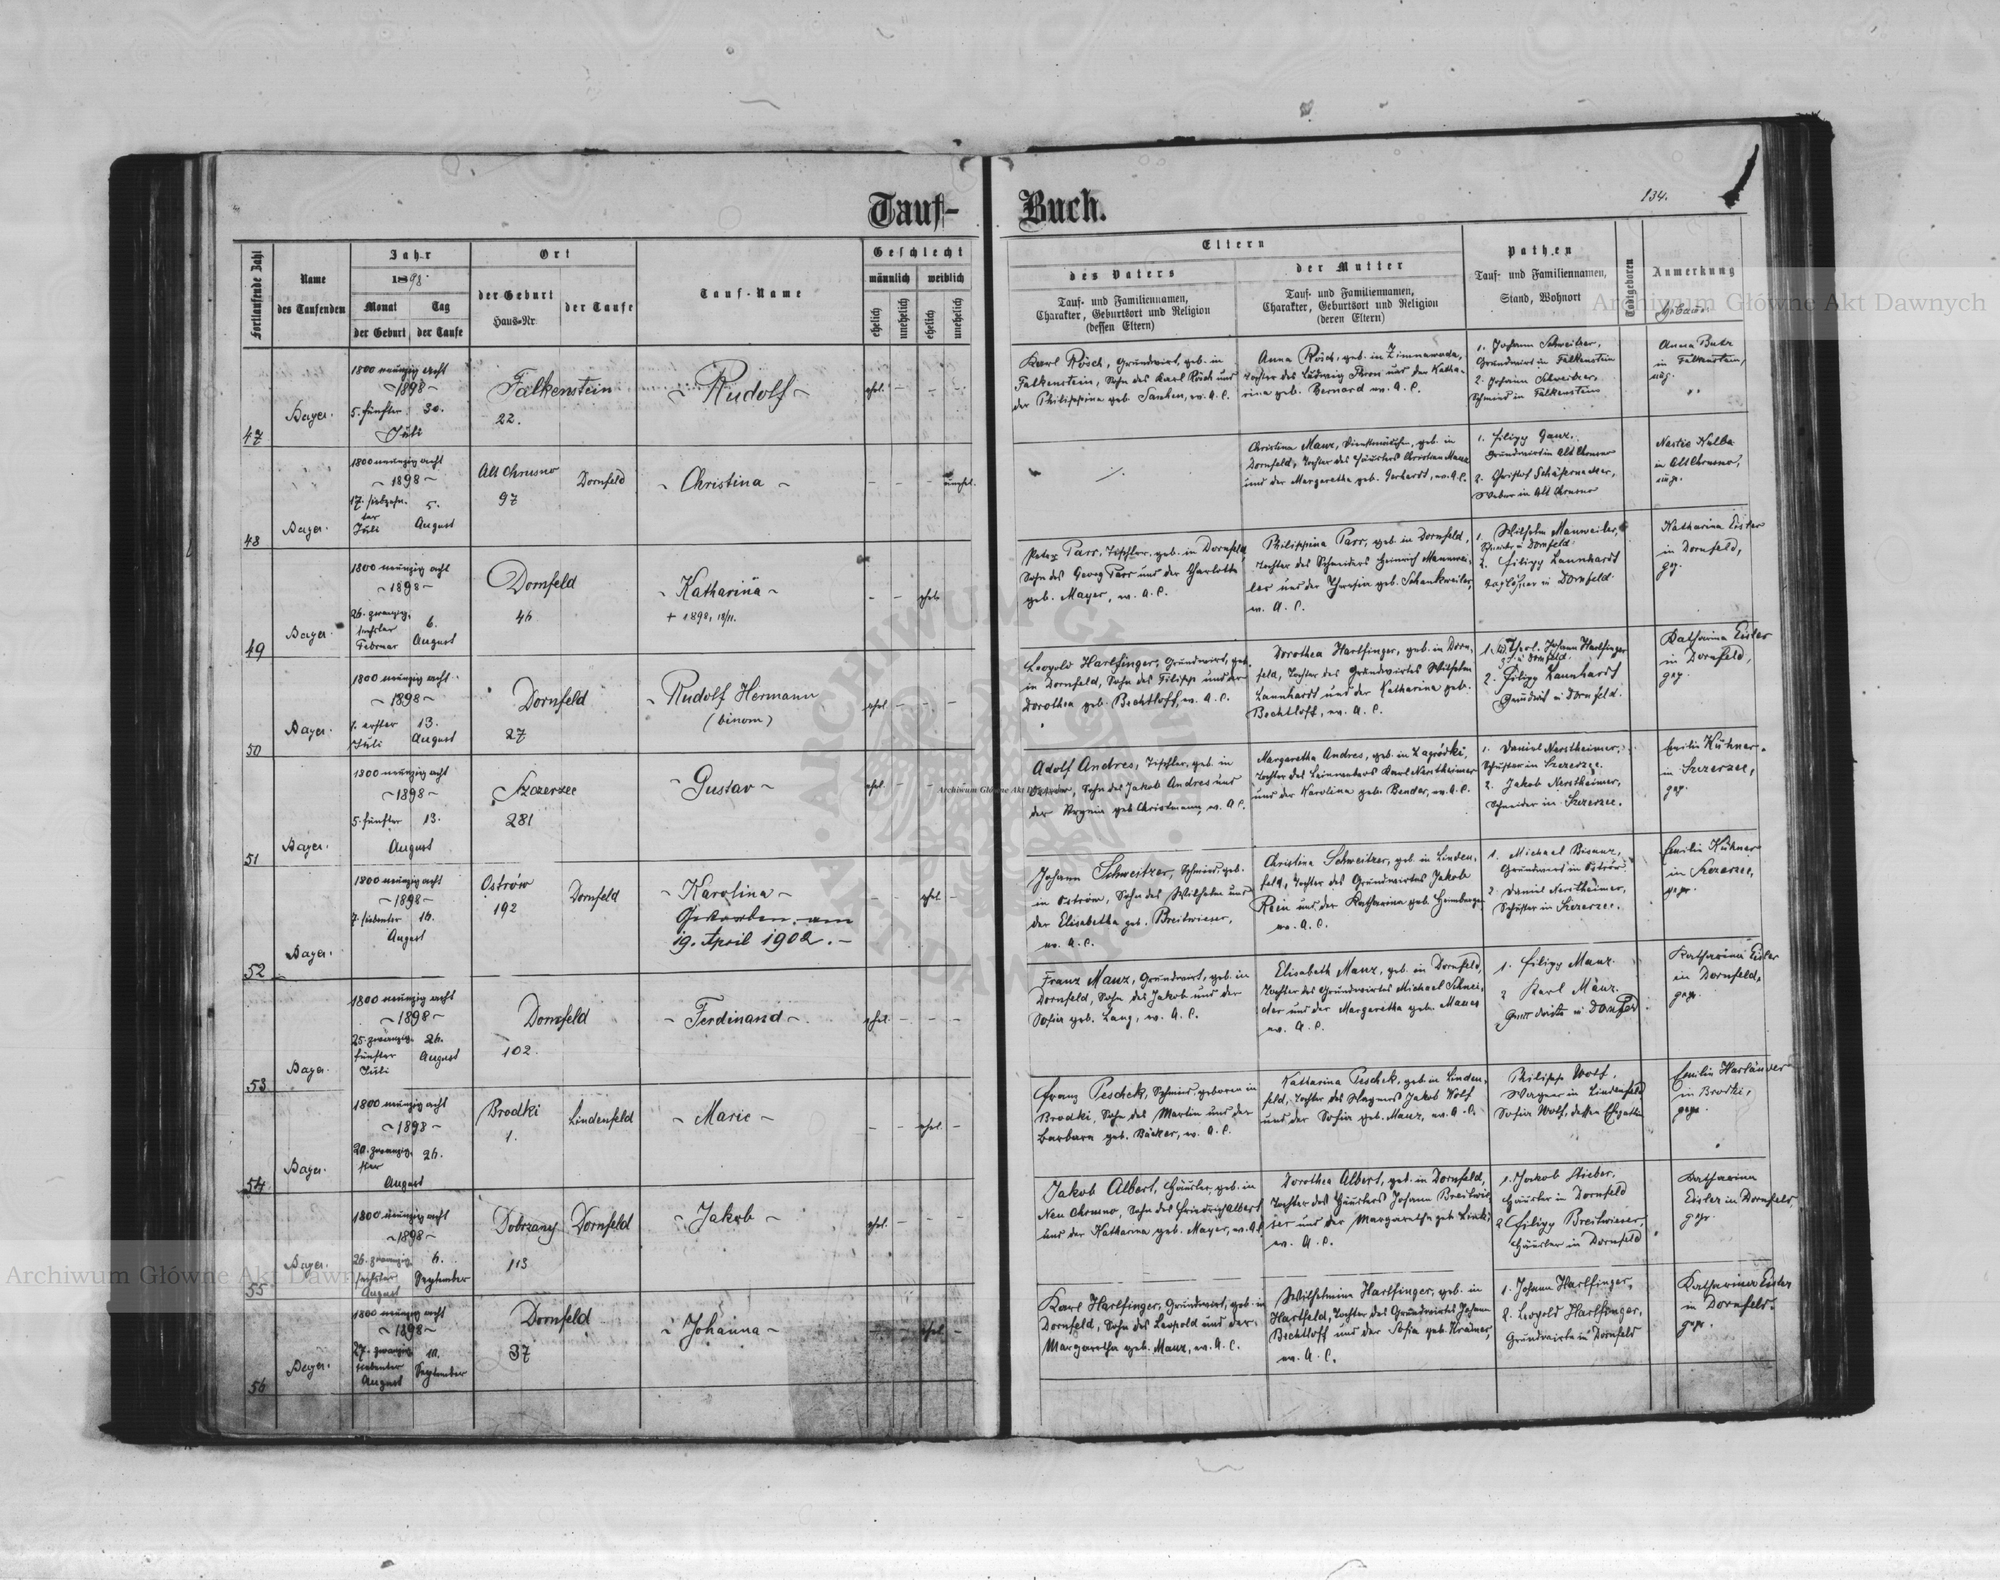 Tauf-
Buch.
134.
Fortlaufende Zahl
Name
des Taufenden
Jahr
1898
Monat
Tag
der Geburt
der Taufe
Ort
der Geburt
Haus-Nr
der Taufe
Tauf-Name
Geschlecht
männlich
weiblich
ehelich
unehelich
ehelich
unehelich
Eltern
des Vaters
Tauf- und Familiennamen,
Charakter, Geburtsort und Religion
(dessen Eltern)
der Mutter
Tauf- und Familiennamen,
Charakter, Geburtsort und Religion
(deren Eltern)
Pathen
Tauf- und Familiennamen,
Stand, Wohnort
Todtgeboren
Anmerkung
47
Bayer.
1800 neunzig acht
~1898~
5. fünfter 30.
Juli
Falkenstein
22.
~ Rudolf ~
ehel. - - -
Karl Rösch, Grundwirt, geb. in
Falkenstein, Sohn des Karl Rösch und
der Philippina geb.
Anna Rösch, geb. in Zimnawoda,
Tochter des Ludwig und der Katha-
rina geb. Bernard ev. A. C.
1. Johann Schweitzer,
Grundwirt in Falkenstein
2. Johann Schweitzer,
Schmied in Falkenstein
Anna
in Falkenstein,
48
Bayer.
1800 neunzig acht
~ 1898 ~
17. siebzehn-
ter 5.
Juli August
Alt Chrusno
97
Dornfeld
~ Christina ~
- - - unehel.
Christina Manz, geb. in
Dornfeld, Tochter des Häuslers Christian Manz
und der Margaretha geb. Gerhardt, ev. A. C.
1. Filipp Ganz,
Grundwirt in Alt Chrusno
2. Christof
Weber in Alt Chrusno
Nastia
in Alt Chrusno,
49
Bayer.
1800 neunzig acht
~1898~
26. zwanzig-
sechster 6.
Februar August
Dornfeld
46
~ Katharina ~
+ 1898, 18/11.
- - ehel.
Peter Parr, Tischler, geb. in Dornfeld
Sohn des Georg Parr und der Charlotte
geb. Mayer, ev. A. C.
Philippina Parr, geb. in Dornfeld,
Tochter des Schneiders Heinrich Mannwei-
ler und der Theresia geb. Schankweiler,
ev. A. C.
1. Wilhelm Manweiler,
in Dornfeld.
2. Filipp Lannhardt
Taglöhner in Dornfeld.
Katharina Eisler
in Dornfeld,
gepr.
50
Bayer.
1800 neunzig acht
~1898~
1. erster 13.
Juli August
Dornfeld
27
~ Rudolf Hermann
(binom)
ehel. - - -
Leopold Harlfinger, Grundwirt, geb.
in Dornfeld, Sohn des Filipp und der
Dorothea geb. Bechtloff, ev. A. C.
Dorothea Harlfinger, geb. in Dorn-
feld, Tochter des Grundwirtes Wilhelm
Lannhardt und der Katharina geb.
Bechtloff, ev. A. C.
Johann Harlfinger
in Dornfeld.
2. Filipp Lannhardt
Grundwirt in Dornfeld.
Katharina Eisler
in Dornfeld,
gepr.
51
Bayer.
1800 neunzig acht
~1898~
5. fünfter 13.
August
Szczerzec
281
~ Gustav ~
ehel. - - -
Adolf Andres, Tischler, geb. in
Ostrów, Sohn des Jakob Andres und
der geb. Christmann, ev. A. C.
Margaretha Andres, geb. in Zagródki,
Tochter des Leinwebers Karl Nerstheimer
und der Karolina geb. Bender, ev. A. C.
1. Daniel Nerstheimer,
Schuster in Szczerzec.
2. Jakob Nerstheimer,
Schneider in Szczerzec.
Emilie Kühner
in Szczerzec,
gepr.
52
Bayer.
1800 neunzig acht
~1898~
7. siebenter 16.
August
Ostrów
192
Dornfeld
~ Karolina ~
Gestorben am
19. April 1902. -
- - ehel. -
Johann Schweitzer, Schmied, geb.
in Ostrów, Sohn des Wilhelm und
der Elisabetha geb. Breitwieser,
ev. A. C.
Christina Schweitzer, geb. in Linden-
feld, Tochter des Grundwirtes Jakob
Rein und der Katharina geb.
ev. A. C.
1. Michael Bisanz,
Grundwirt in Ostrów.
2. Daniel Nerstheimer,
Schuster in Szczerzec.
Emilie Kühner
in Szczerzec,
gepr.
53
Bayer.
1800 neunzig acht
~1898~
25. zwanzig- 26.
fünfter August
Juli
Dornfeld
102.
~ Ferdinand ~
ehel. - - -
Franz Manz, Grundwirt, geb. in
Dornfeld, Sohn des Jakob und der
Sofia geb. Lang, ev. A. C.
Elisabeth Manz, geb. in Dornfeld,
Tochter des Grundwirtes Michael Schnei-
der und der Margaretha geb. Manz
ev. A. C.
1. Filipp Manz.
2 Karl Manz.
Grundwirte in Dornfeld
Katharina Eisler
in Dornfeld,
gepr.
54
Bayer.
1800 neunzig acht
~1898~
20. zwanzig- 26.
ster
August
Brodki
1.
Lindenfeld
~ Marie ~
- - ehel. -
Franz Peschek, Schmied, geboren in
Brodki, Sohn des Martin und der
Barbara geb. Bäcker, ev. A. C.
Katharina Peschek, geb. in Linden-
feld, Tochter des Wagners Jakob Wolf
und der Sofia geb. Manz, ev. A. C.
Philipp Wolf,
Wagner in Lindenfeld
Sofia Wolf, dessen Ehegattin
Emilie Harländer
in Brodki,
gepr.
55
Bayer.
1800 neunzig acht
~1898~
26. zwanzig- 6.
sechster September
August
Dobrzany
113
Dornfeld
~ Jakob ~
ehel. - - -
Jakob Albert, Häusler, geb. in
Neu Chrusno, Sohn des Friedrich Albert
und der Katharina geb. Mayer, ev. A. C.
Dorothea Albert, geb. in Dornfeld,
Tochter des Häuslers Johann Breitwie-
ser und der Margaretha geb. Linki,
ev. A. C.
1. Jakob Stieber,
Häusler in Dornfeld
2 Filipp Breitwieser,
Häusler in Dornfeld
Katharina
Eisler in Dornfeld,
gepr.
56
Bayer.
1800 neunzig acht
~1898~
27. zwanzig- 10.
siebenter September
August
Dornfeld
37
~ Johanna ~
- - ehel. -
Karl Harlfinger, Grundwirt, geb. in
Dornfeld, Sohn des Leopold und der
Margaretha geb. Manz, ev. A. C.
Wilhelmine Harlfinger, geb. in
Hartfeld, Tochter des Grundwirtes Johann
Bechtloff und der Sofia geb. Krämer,
ev. A. C.
1. Johann Harlfinger,
2. Leopold Harlfinger,
Grundwirte in Dornfeld
Katharina Eisler
in Dornfeld.
gepr.
Archiwum Główne Akt Dawnych
Archiwum Główne Akt Dawnych
Archiwum Główne Akt Dawnych